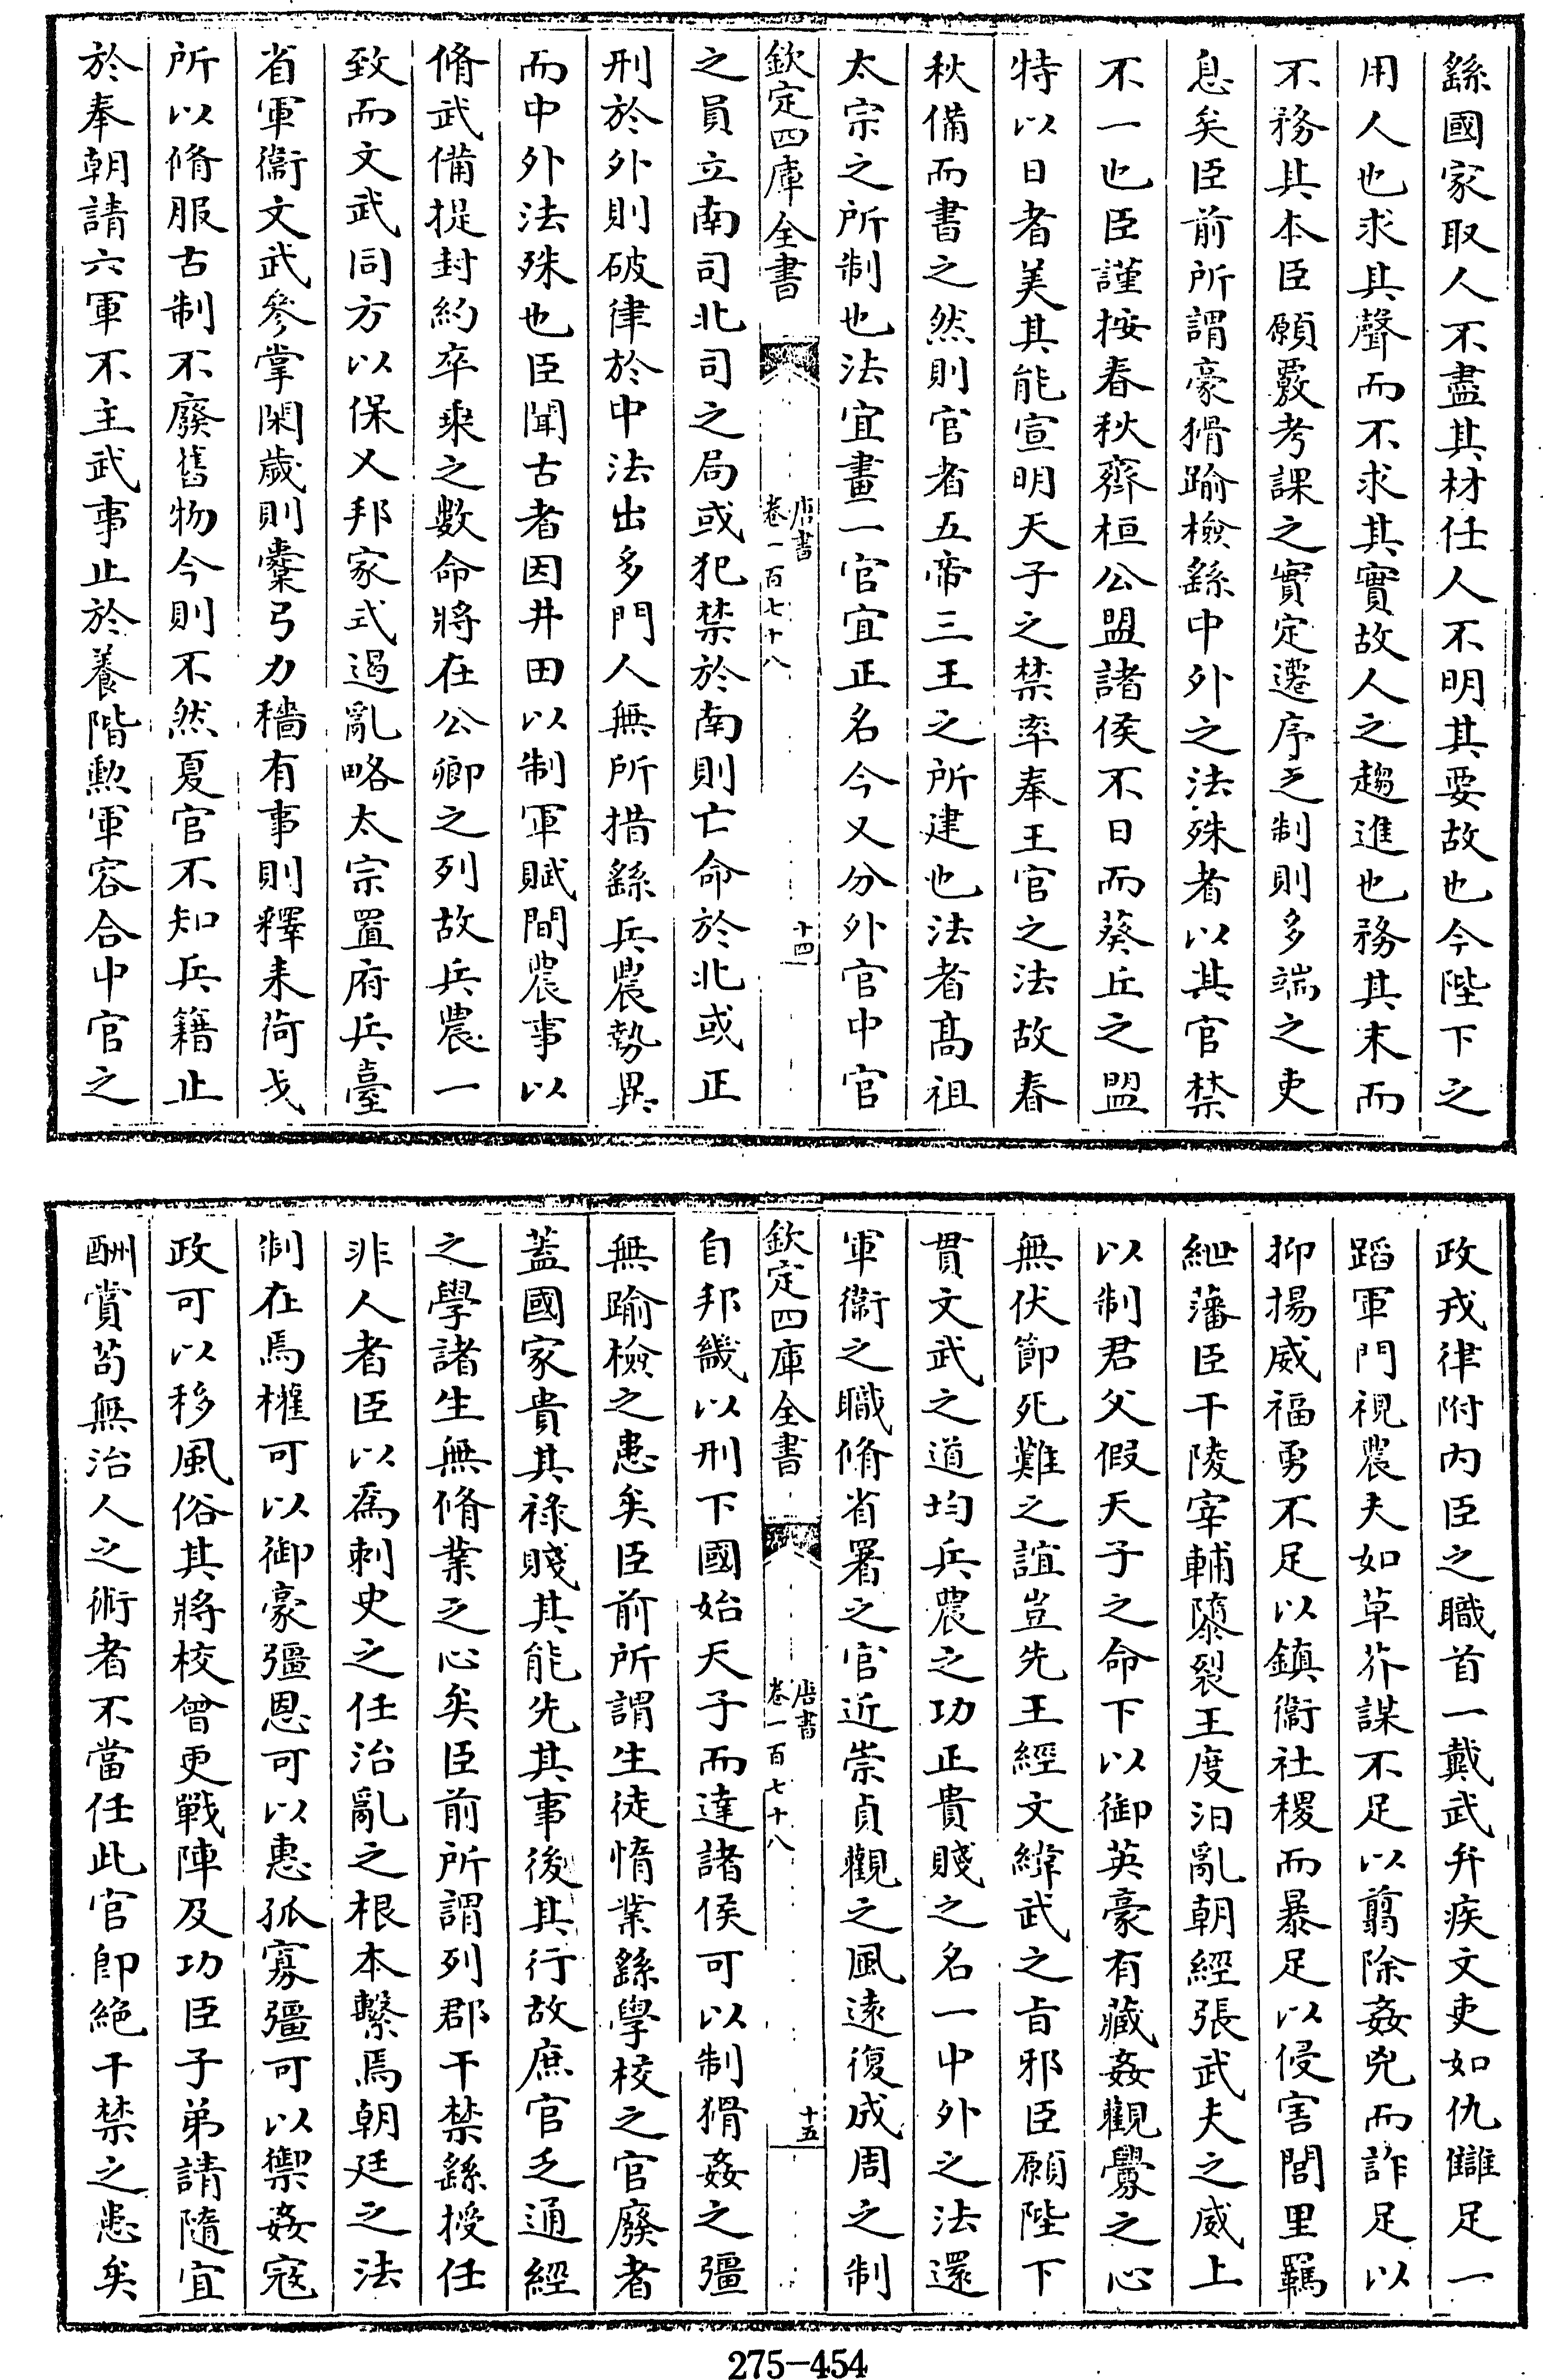 繇國家取人不盡其材任人不明其要故也今陛下之
用人也求其聲而不求其實故人之趨進也務其末而
不務其本臣願覈考課之實定遷序之制則多端之吏
息矣臣前所謂豪猾踰檢繇中外之法殊者以其官禁
不一也臣謹按春秋齊桓公盟諸侯不日而葵丘之盟
特以日者美其能宣明天子之禁率奉王官之法故春
秋備而書之然則官者五帝三王之所建也法者高祖
太宗之所制也法宜畫一官宜正名今又分外官中官
欽定四庫全書
唐書
卷一百七十八
十四
之員立南司北司之局或犯禁於南則亡命於北或正
刑於外則破律於中法出多門人無所措繇兵農勢異
而中外法殊也臣聞古者因井田以制軍賦間農事以
脩武備提封約卒乘之數命將在公卿之列故兵農一
致而文武同方以保乂邦家式遏亂略太宗置府兵臺
省軍衞文武參掌閑歲則櫜弓力穡有事則釋耒荷戈
所以脩服古制不廢舊物今則不然夏官不知兵籍止
於奉朝請六軍不主武事止於養階勲軍容合中官之
政戎律附内臣之職首一戴武弁疾文吏如仇讎足一
蹈軍門視農夫如草芥謀不足以翦除姦兇而詐足以
抑揚威福勇不足以鎮衞社稷而暴足以侵害閭里羈
紲藩臣干陵宰輔隳裂王度汩亂朝經張武夫之威上
以制君父假天子之命下以御英豪有藏姦觀釁之心
無伏節死難之誼豈先王經文緯武之旨邪臣願陛下
貫文武之道均兵農之功正貴賤之名一中外之法還
軍衞之職脩省署之官近崇貞觀之風遠復成周之制
欽定四庫全書
唐書
卷一百七十八
十五
自邦畿以刑下國始天子而達諸侯可以制猾姦之彊
無踰檢之患矣臣前所謂生徒惰業繇學校之官廢者
蓋國家貴其祿賤其能先其事後其行故庶官乏通經
之學諸生無脩業之心矣臣前所謂列郡干禁繇授任
非人者臣以爲刺史之任治亂之根本繫焉朝廷之法
制在焉權可以御豪彊恩可以惠孤寡彊可以禦姦寇
政可以移風俗其將校曾更戰陣及功臣子弟請隨宜
酬賞苟無治人之術者不當任此官即絶干禁之患矣
275-454